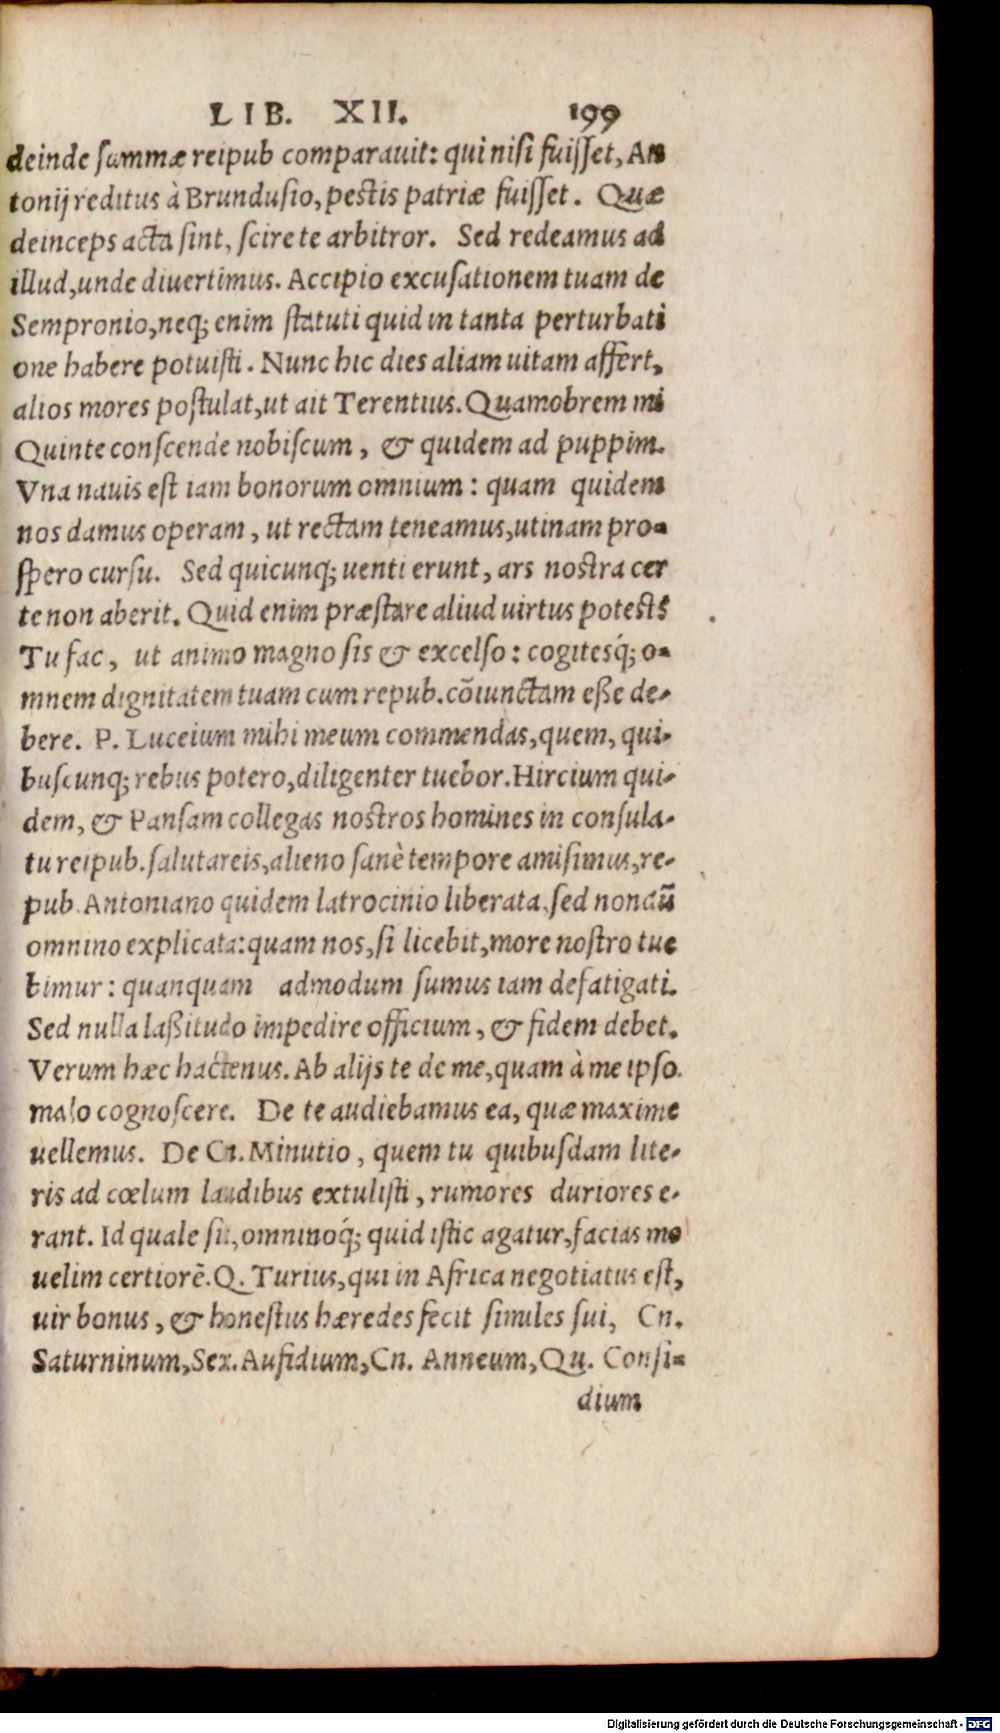 LIB. XII. 199
deinde summæ reipub comparauit: qui nisi fuisset, An
tonij reditus à Brundusio, pestis patriæ fuisset. Quæ
deinceps acta sint, scire te arbitror. Sed redeamus ad
illud, unde diuertimus. Accipio excusationem tuam de
Sempronio, neq; enim statuti quid in tanta perturbati
one habere potuisti. Nunc hic dies aliam uitam affert,
alios mores postulat, ut ait Terentius. Quamobrem mi
Quinte conscende nobiscum, & quidem ad puppim.
Vna nauis est iam bonorum omnium: quam quidem
nos damus operam, ut rectam teneamus, utinam pro-
spero cursu. Sed quicunq; uenti erunt, ars nostra cer
te non aberit. Quid enim præstare aliud uirtus potest?
Tu fac, ut animo magno sis & excelso: cogitesq́; o-
mnem dignitatem tuam cum repub. cōiunctam eße de-
bere. P. Luceium mihi meum commendas, quem, qui-
buscunq; rebus potero, diligenter tuebor. Hircium qui-
dem, & Pansam collegas nostros homines in consula-
tu reipub. salutareis, alieno sanè tempore amisimus, re-
pub. Antoniano quidem latrocinio liberata, sed nondū
omnino explicata: quam nos, si licebit, more nostro tue
bimur: quanquam admodum sumus iam defatigati.
Sed nulla laßitudo impedire officium, & fidem debet.
Verum hæc hactenus. Ab alijs te de me, quam à me ipso.
malo cognoscere. De te audiebamus ea, quæ maxime
uellemus. De Cn. Minutio, quem tu quibusdam lite-
ris ad cœlum laudibus extulisti, rumores duriores e-
rant. Id quale sit, omninoq́; quid istic agatur, facias me
uelim certiorē. Q. Turius, qui in Africa negotiatus est,
uir bonus, & honestus hæredes fecit similes sui, Cn.
Saturninum, Sex. Aufidium, Cn. Anneum, Qu. Consi-
dium
Digitalisierung gefördert durch die Deutsche Forschungsgemeinschaft - DFG